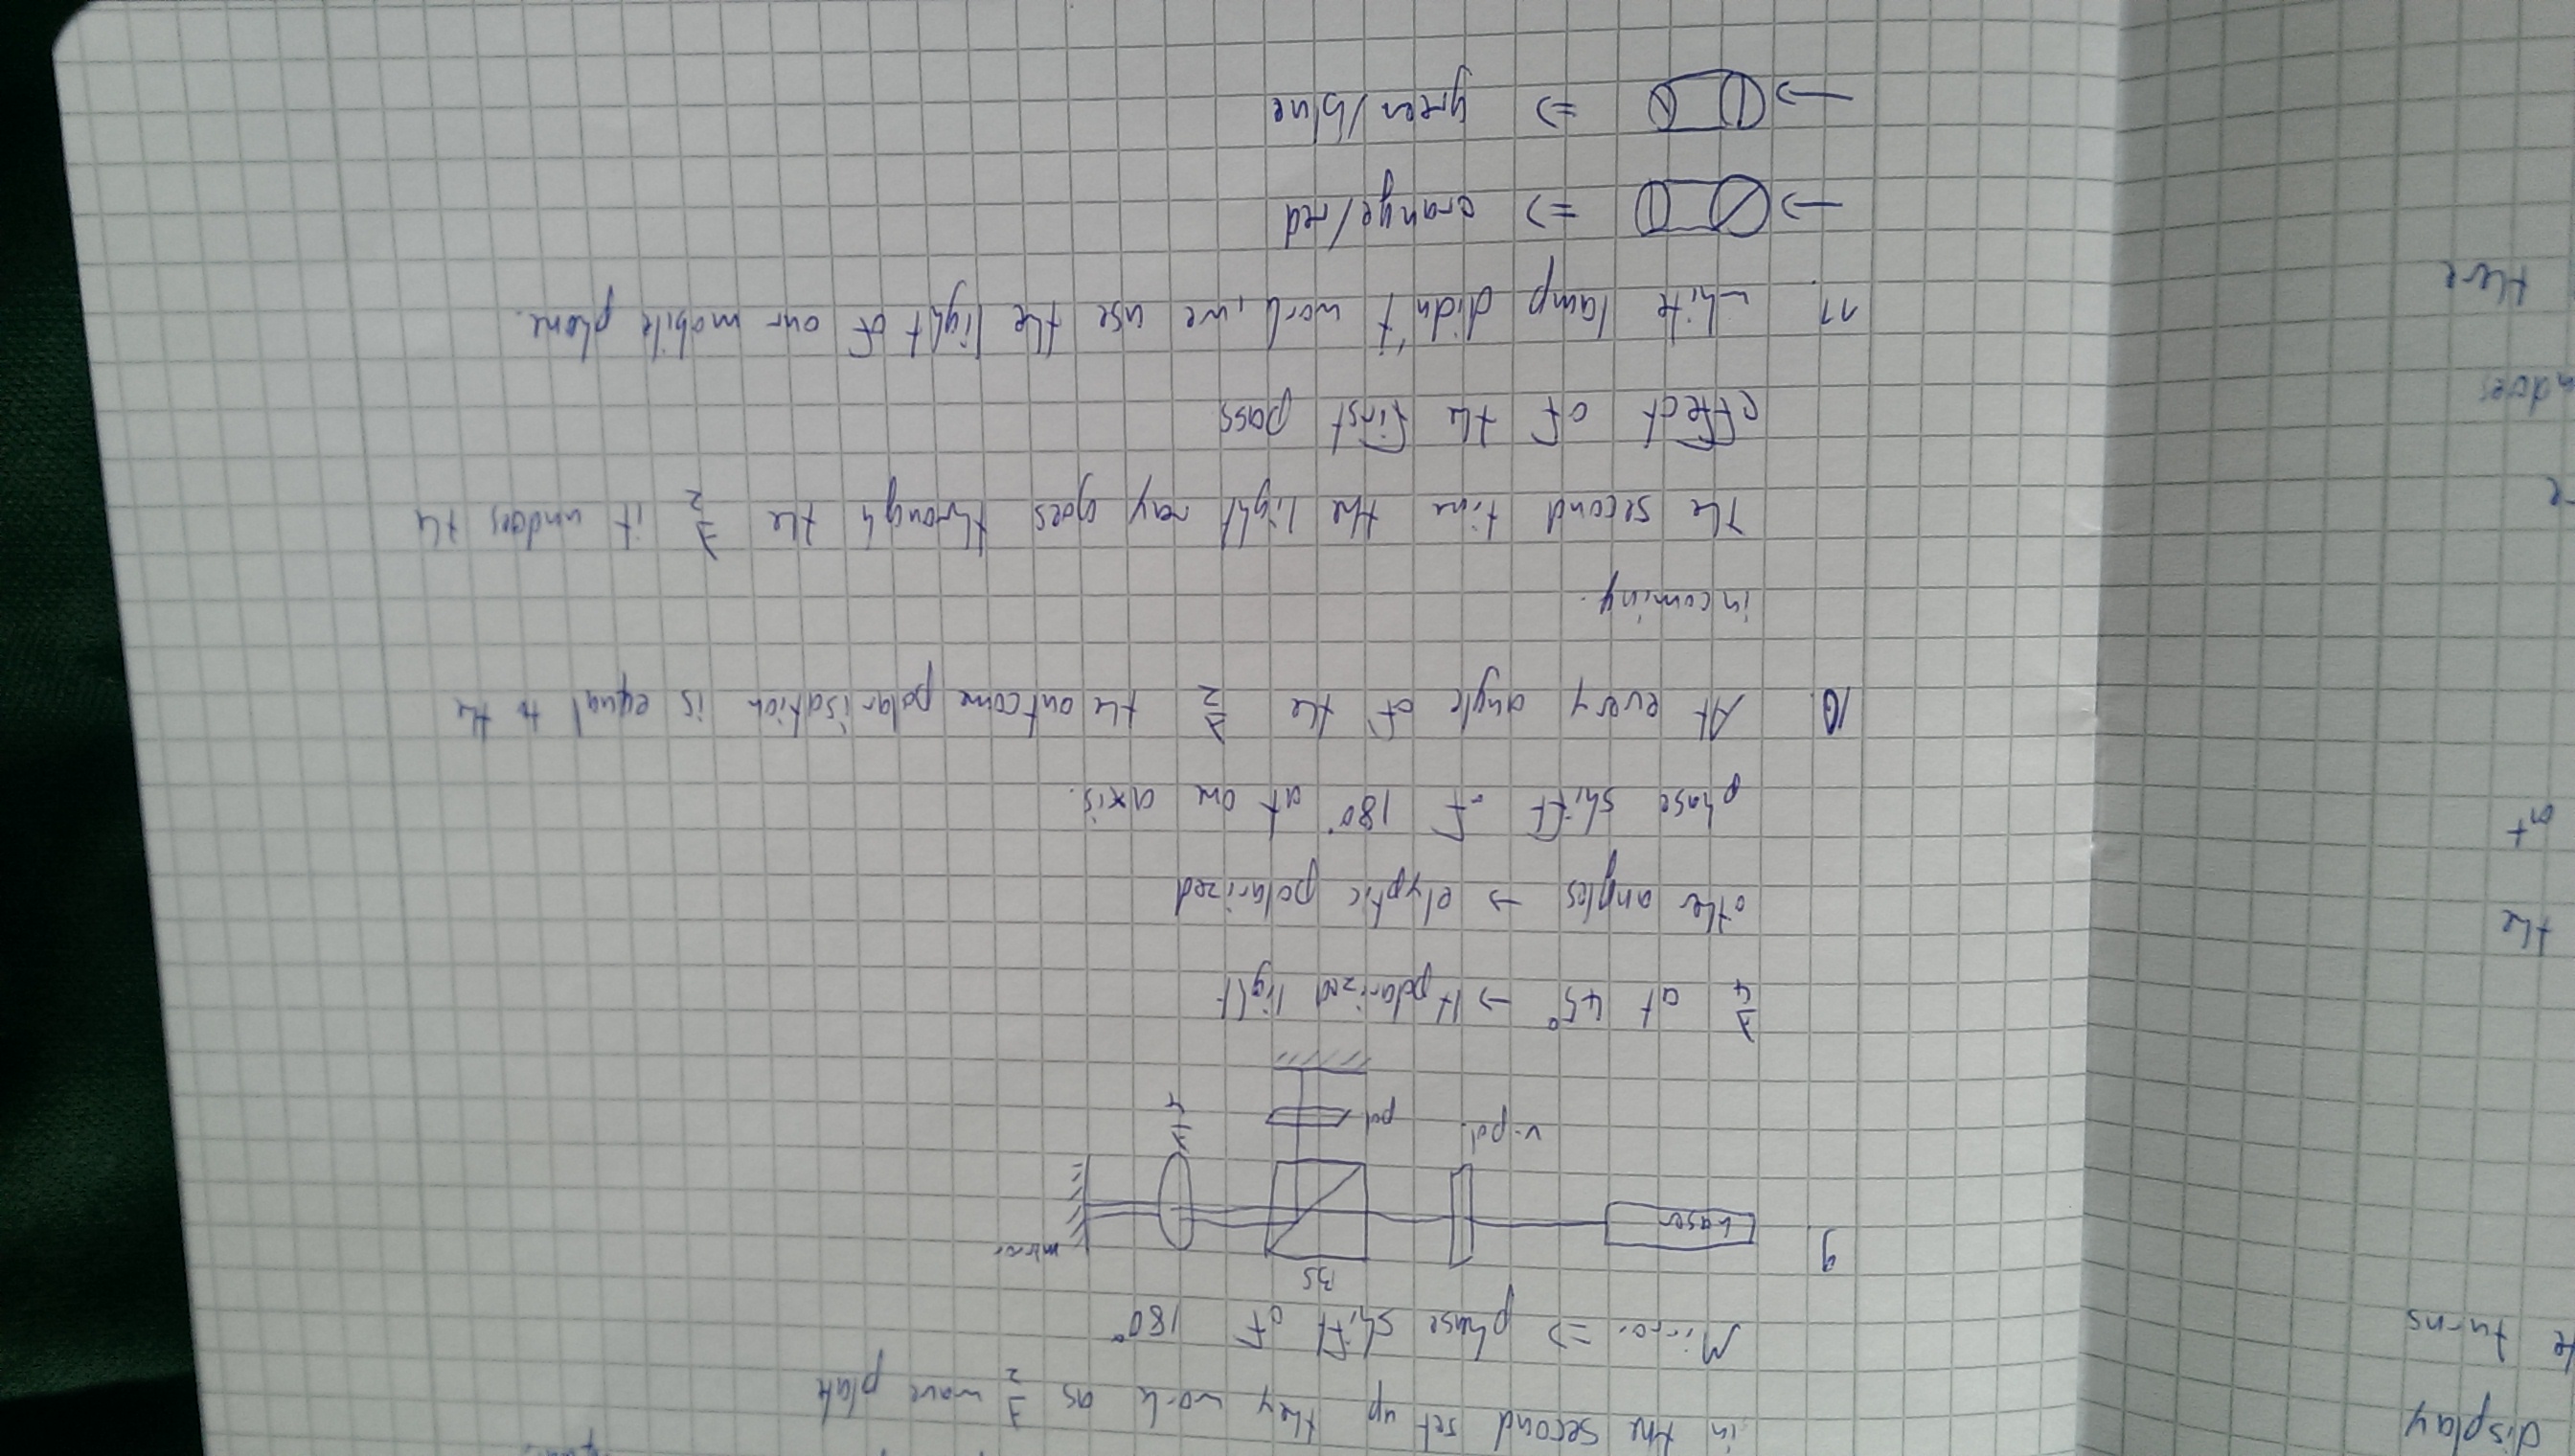 in the second set up they work as λ/2 wave plate
Mirror => phase shift of 180°
9.
Laser
v-pol.
BS
pol
λ/4
mirror
λ/4 at 45° → H polarized light
othe angles → elyptic polarized
phase shift of 180° at one axis.
10. At every angle of the λ/2 the outcome polarisation is equal to the
incoming.
The second time the light ray goes through the λ/2 it undoes the
effect of the first pass
11. white lamp didn't work, we use the light of our mobile phone.
=> orange/red
=> green/blue
display
turns
the
there